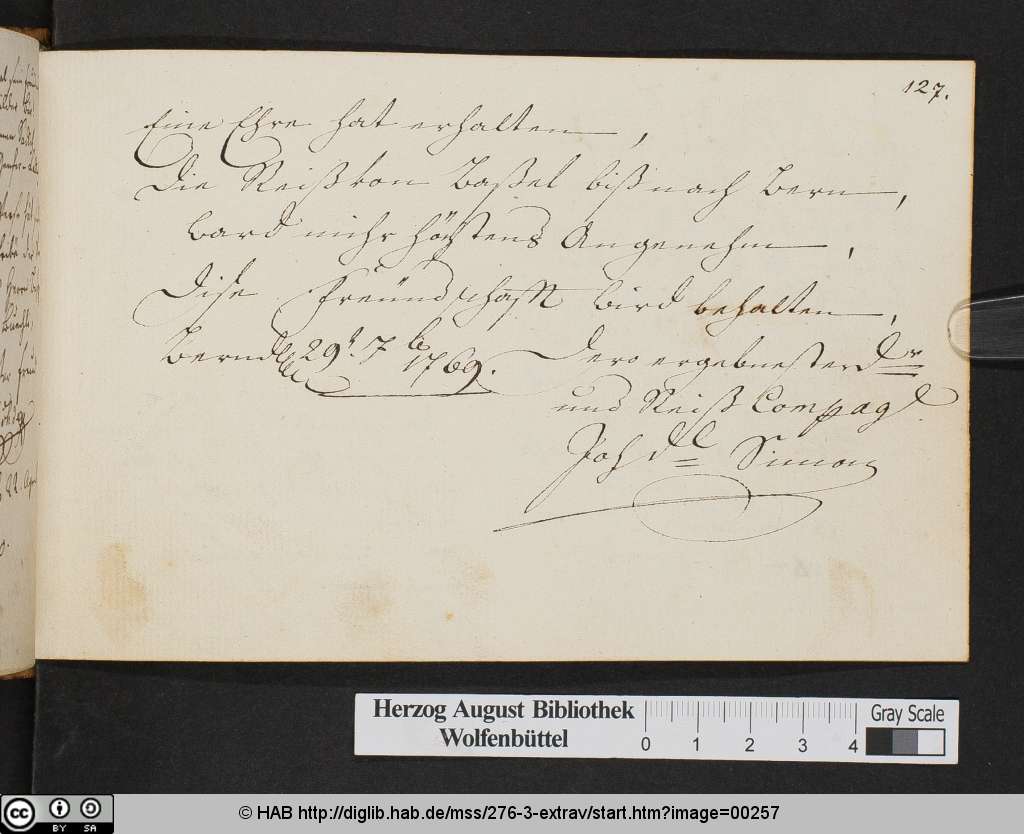 127.
Eine Ehre hat erhalten,
Die Reiß von Baßel biß nach Bern,
Ward mihr höchstens Angenehm,
Dise Freündschafft wird behalten,
Bern d 29t. 7b 1769. Dero ergebnester Dr
und Reiß Compag
Joh Simon
22. Apr
Herzog August Bibliothek
Wolfenbüttel
0 1 2 3 4
Gray Scale
cc BY SA
© HAB http://diglib.hab.de/mss/276-3-extrav/start.htm?image=00257